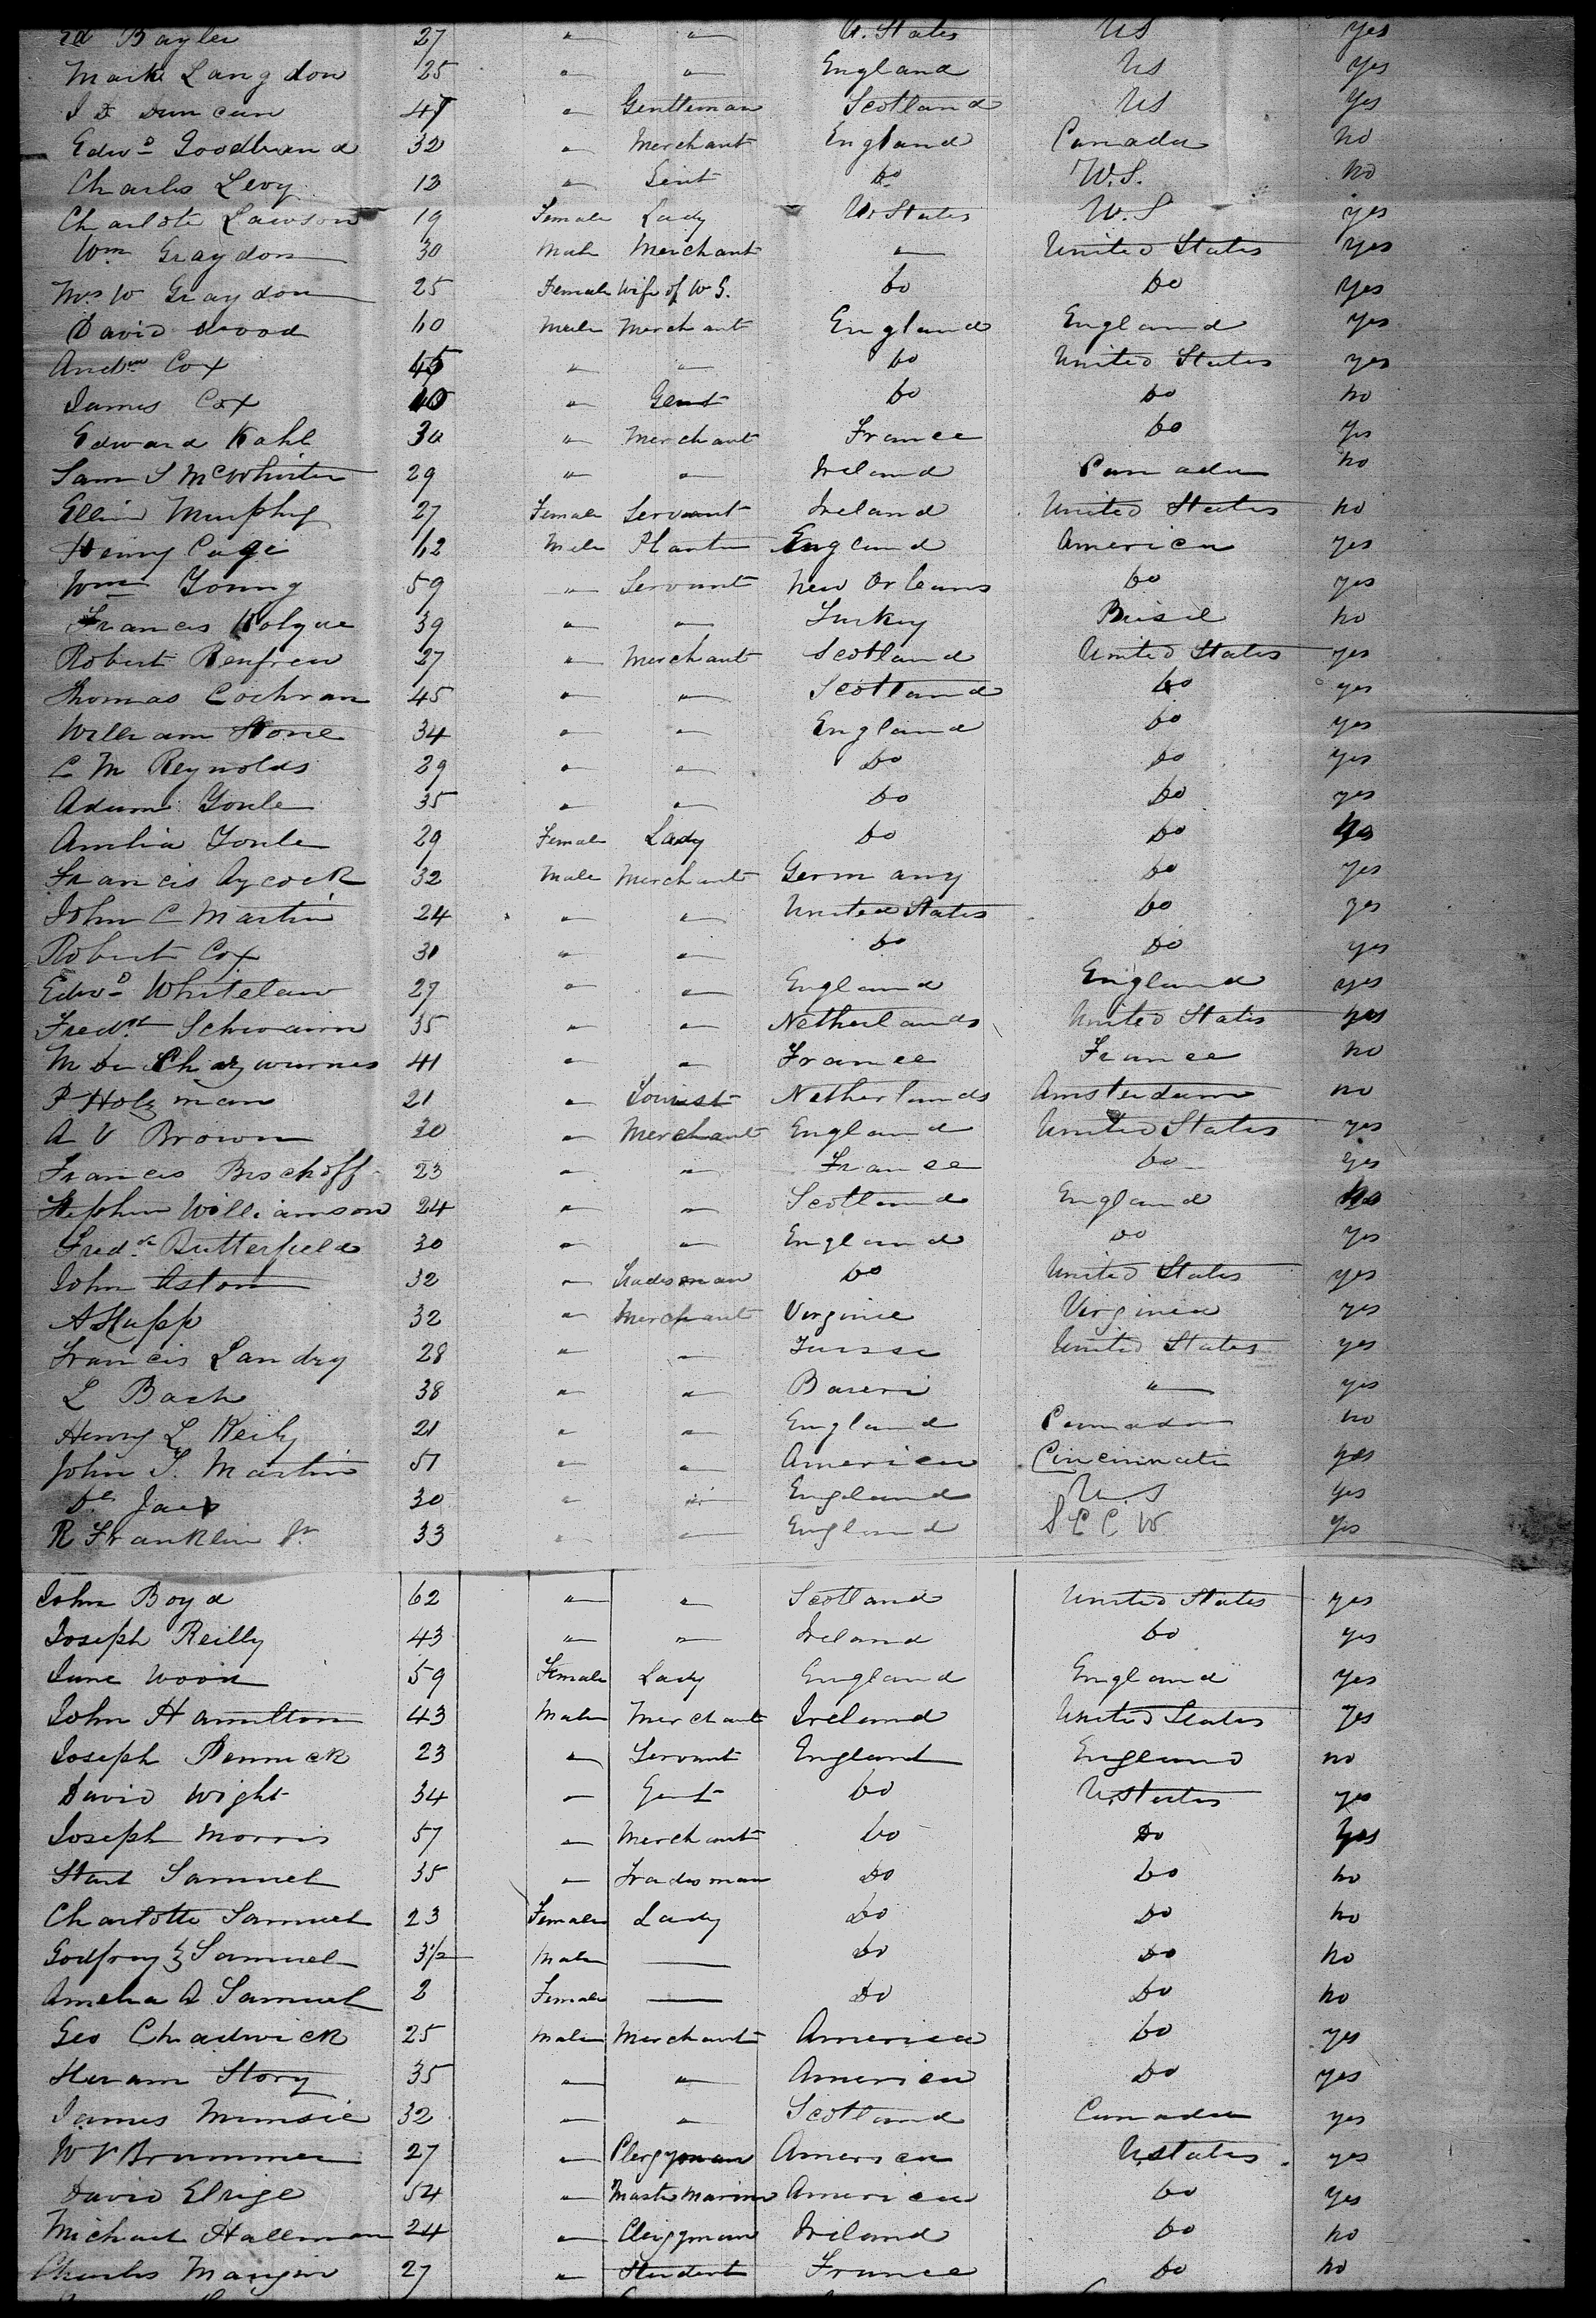 Bayler 27 " " U. States US yes
Mark Langdon 25 " " England US yes
J D Duncan 47 " Gentleman Scotland US Yes
Edwd Goodbrand 32 " Merchant England Canada no
Charles Levy 13 " Gent Do U.S. no
Charlote Lawson 19 Female Lady U States U.S yes
Wm Graydon 30 Male Merchant " United States yes
Mrs W Graydon 25 Female Wife of W G. Do Do yes
David Wood 60 Male Merchant England England yes
Andw Cox 45 " " Do United States yes
James Cox 10 " Gent Do Do no
Edward Kahl 30 " Merchant France Do yes
Sam S McWhirter 29 " " Ireland Canada no
Ellin Murphy 27 Female Servant Ireland United States no
Henry Cage 62 Male Planter England America yes
Wm Young 59 " Servant New Orleans Do yes
Frances 39 " " Turkey no
Robert Renfrew 27 " Merchant Scotland United States yes
Thomas Cochran 45 " " Scotland Do yes
William Stone 34 " " England Do yes
C M Reynolds 29 " " Do Do yes
Adam Goule 35 " " Do Do yes
Amelia Goule 29 Female Lady Do Do
Francis Aycock 32 Male Merchant Germany Do yes
John C Martin 24 " " United States Do yes
Robert Cox 31 " " Do Do yes
Edwd Whitelaw 27 " " England England yes
Fredk Schwann 35 " " Netherlands United States yes
M De 41 " " France France no
P Holzman 21 " Tourist Netherlands Amsterdam no
A V Brown 30 " Merchant England United States yes
Francis Bischoff 23 " " France Do yes
Stephen Williamson 24 " " Scotland England no
Fredk Butterfield 30 " " England Do yes
John Aston 32 " Tradesman Do United States yes
A Hupp 32 " Merchant Virginie Virginia yes
Francis Landry 28 " " Suisse United States yes
L Bach 38 " " " yes
Henry L Reily 21 " " England Cannada no
John S. Martin 51 " " America Cincinnati yes
30 " " England U.S yes
R Franklin Jr 33 " " England yes
John Boyd 62 " " Scotland United States yes
Joseph Reilly 43 " " Ireland Do yes
Jane Wood 59 Female Lady England England yes
John Hamilton 43 Male Merchant Ireland United States yes
Joseph Pennick 23 " Servant England England no
David Wight 34 " Gent Do U States yes
Joseph Morris 57 " Merchant Do Do yes
Samuel 35 " Tradesman Do Do no
Charlotte Samuel 23 Female Lady Do Do no
Godfrey Samuel 3½ Male — Do Do no
Amelia A Samuel 2 Female — Do Do no
Geo Chadwick 25 Male Merchant America Do yes
Hiram Story 35 " " America Do yes
James Mimsie 32 " " Scotland Canada yes
W V Brummer 27 " Clergyman America U States yes
David 54 " Master Marine America Do yes
Michael Hallman 24 " Clergyman Ireland Do no
Charles Mangin 27 " Student France Do no